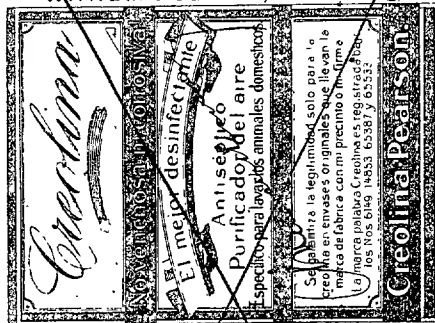 Creolina
No venenosa ni corrosiva
El mejor desinfectante
Antiséptico
Purificador del aire
Especifico para lavar los animales domesticos
Se garantiza la legitimidad solo para la
creolina en envases originales que llevan la
marca de fabrica con mi precinto o mi firma
La marca palabra Creolina es registrada bajo
los Nos 6149 14853 65387 y 65533
Creolina Pearson